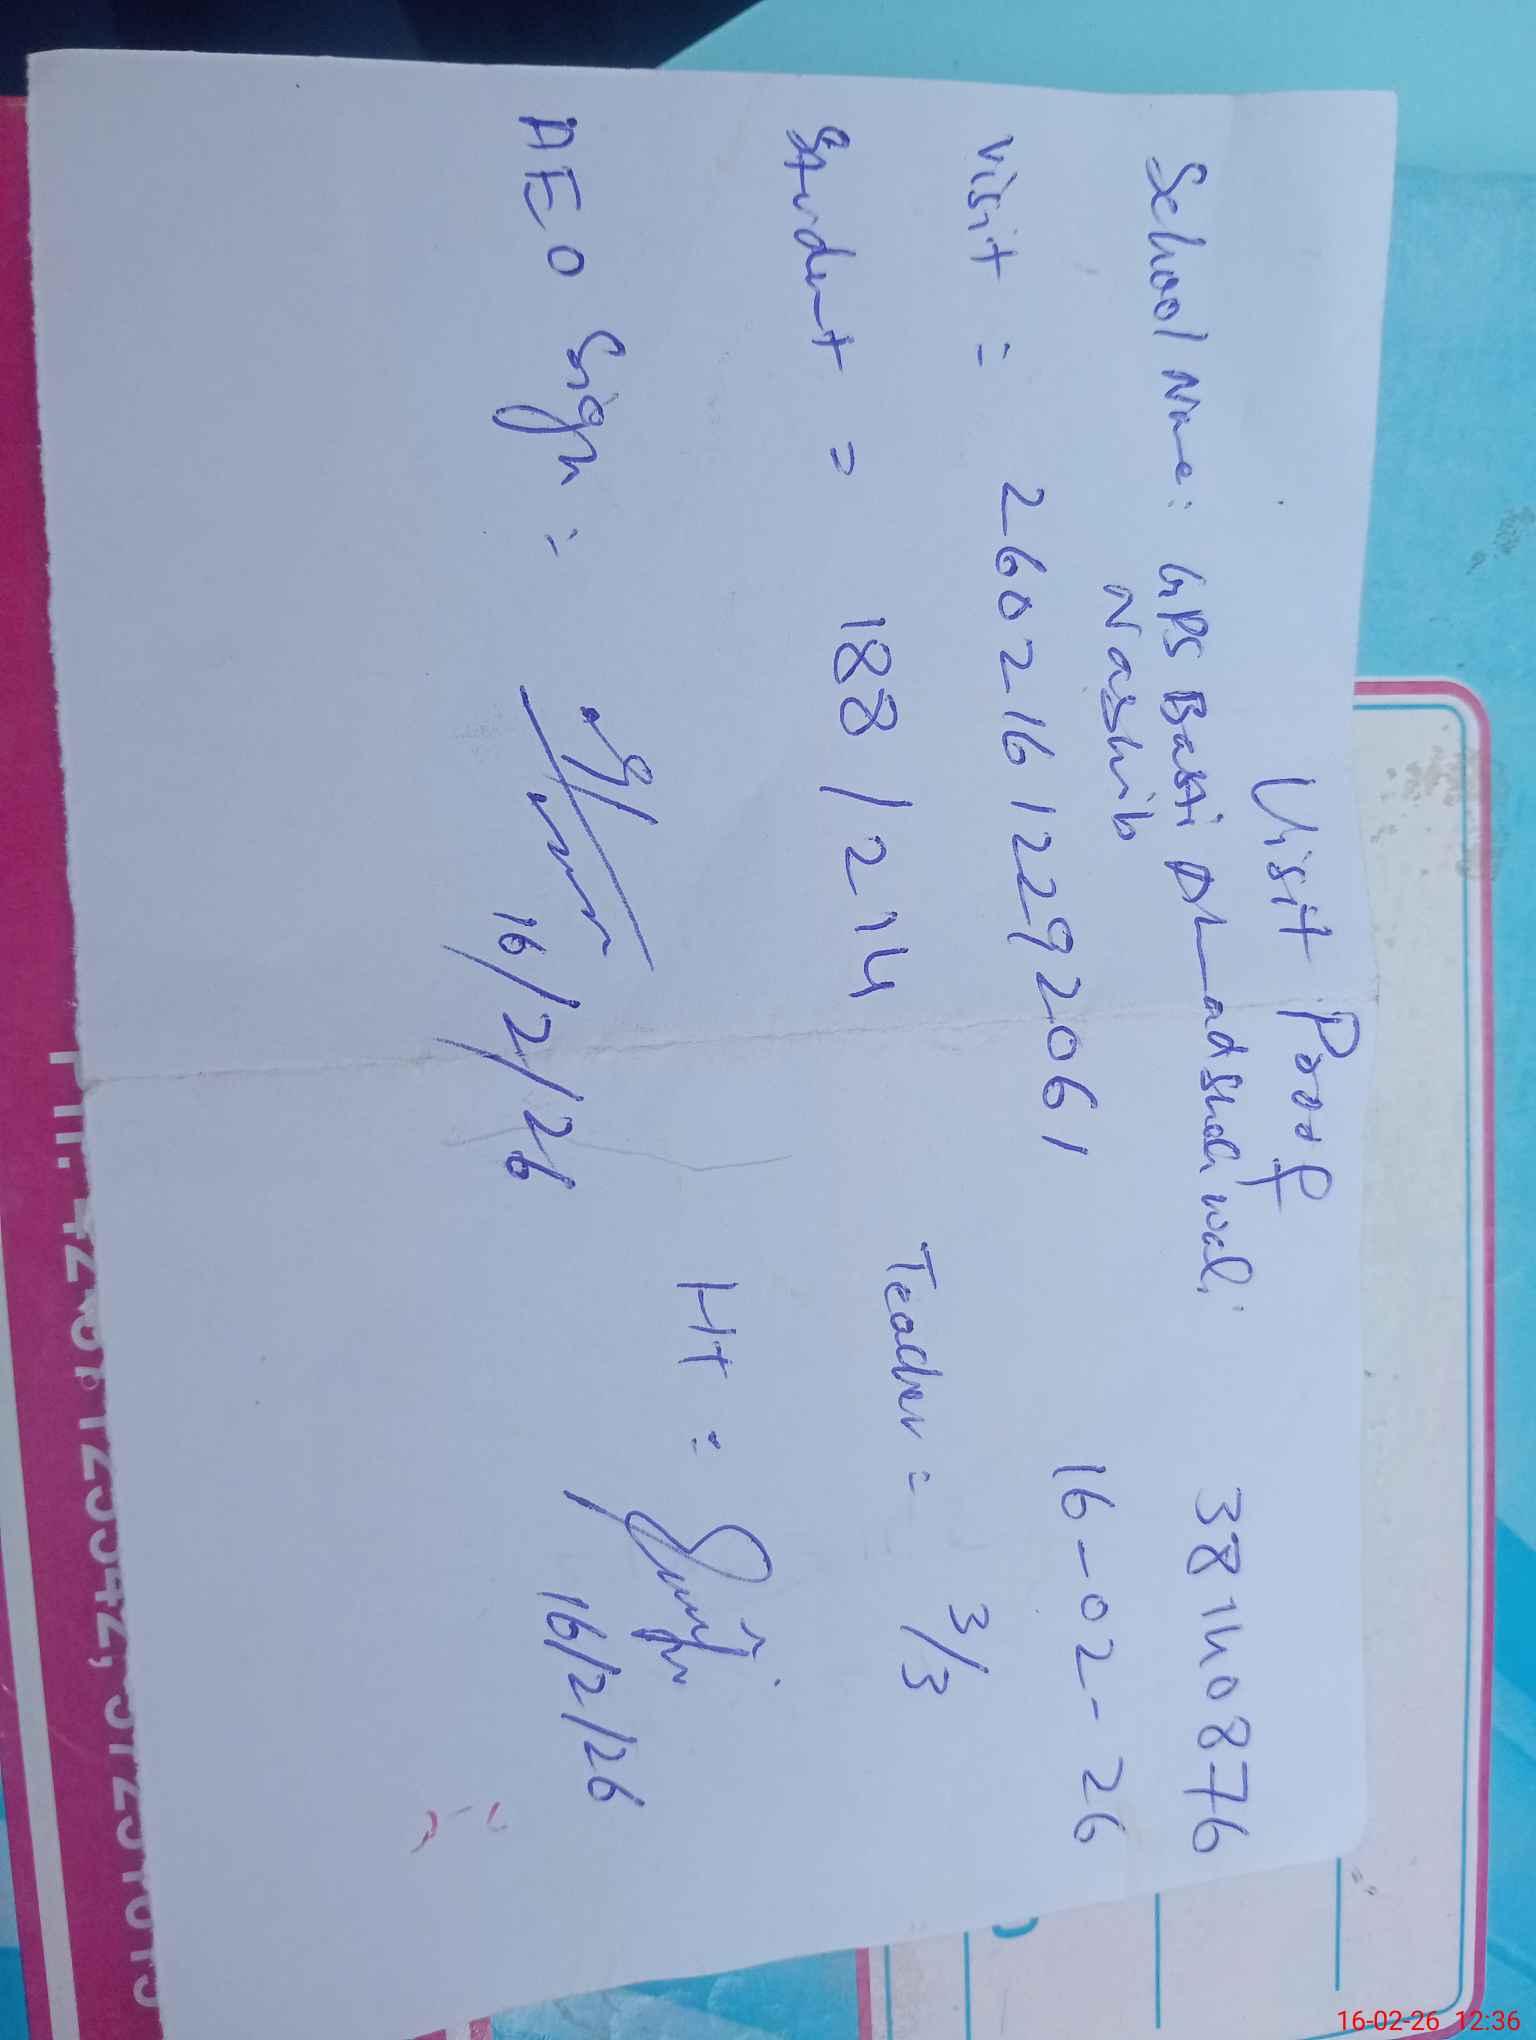 Visit Proof
School Name: GPS Basti Dhandshahwali 38140876
Nashib
Visit = 26021612292061 16-02-26
Student = 188/214 Teacher = 3/3
HT =
AEO Sign =
16/2/26 16/2/26
16-02-26 12:36